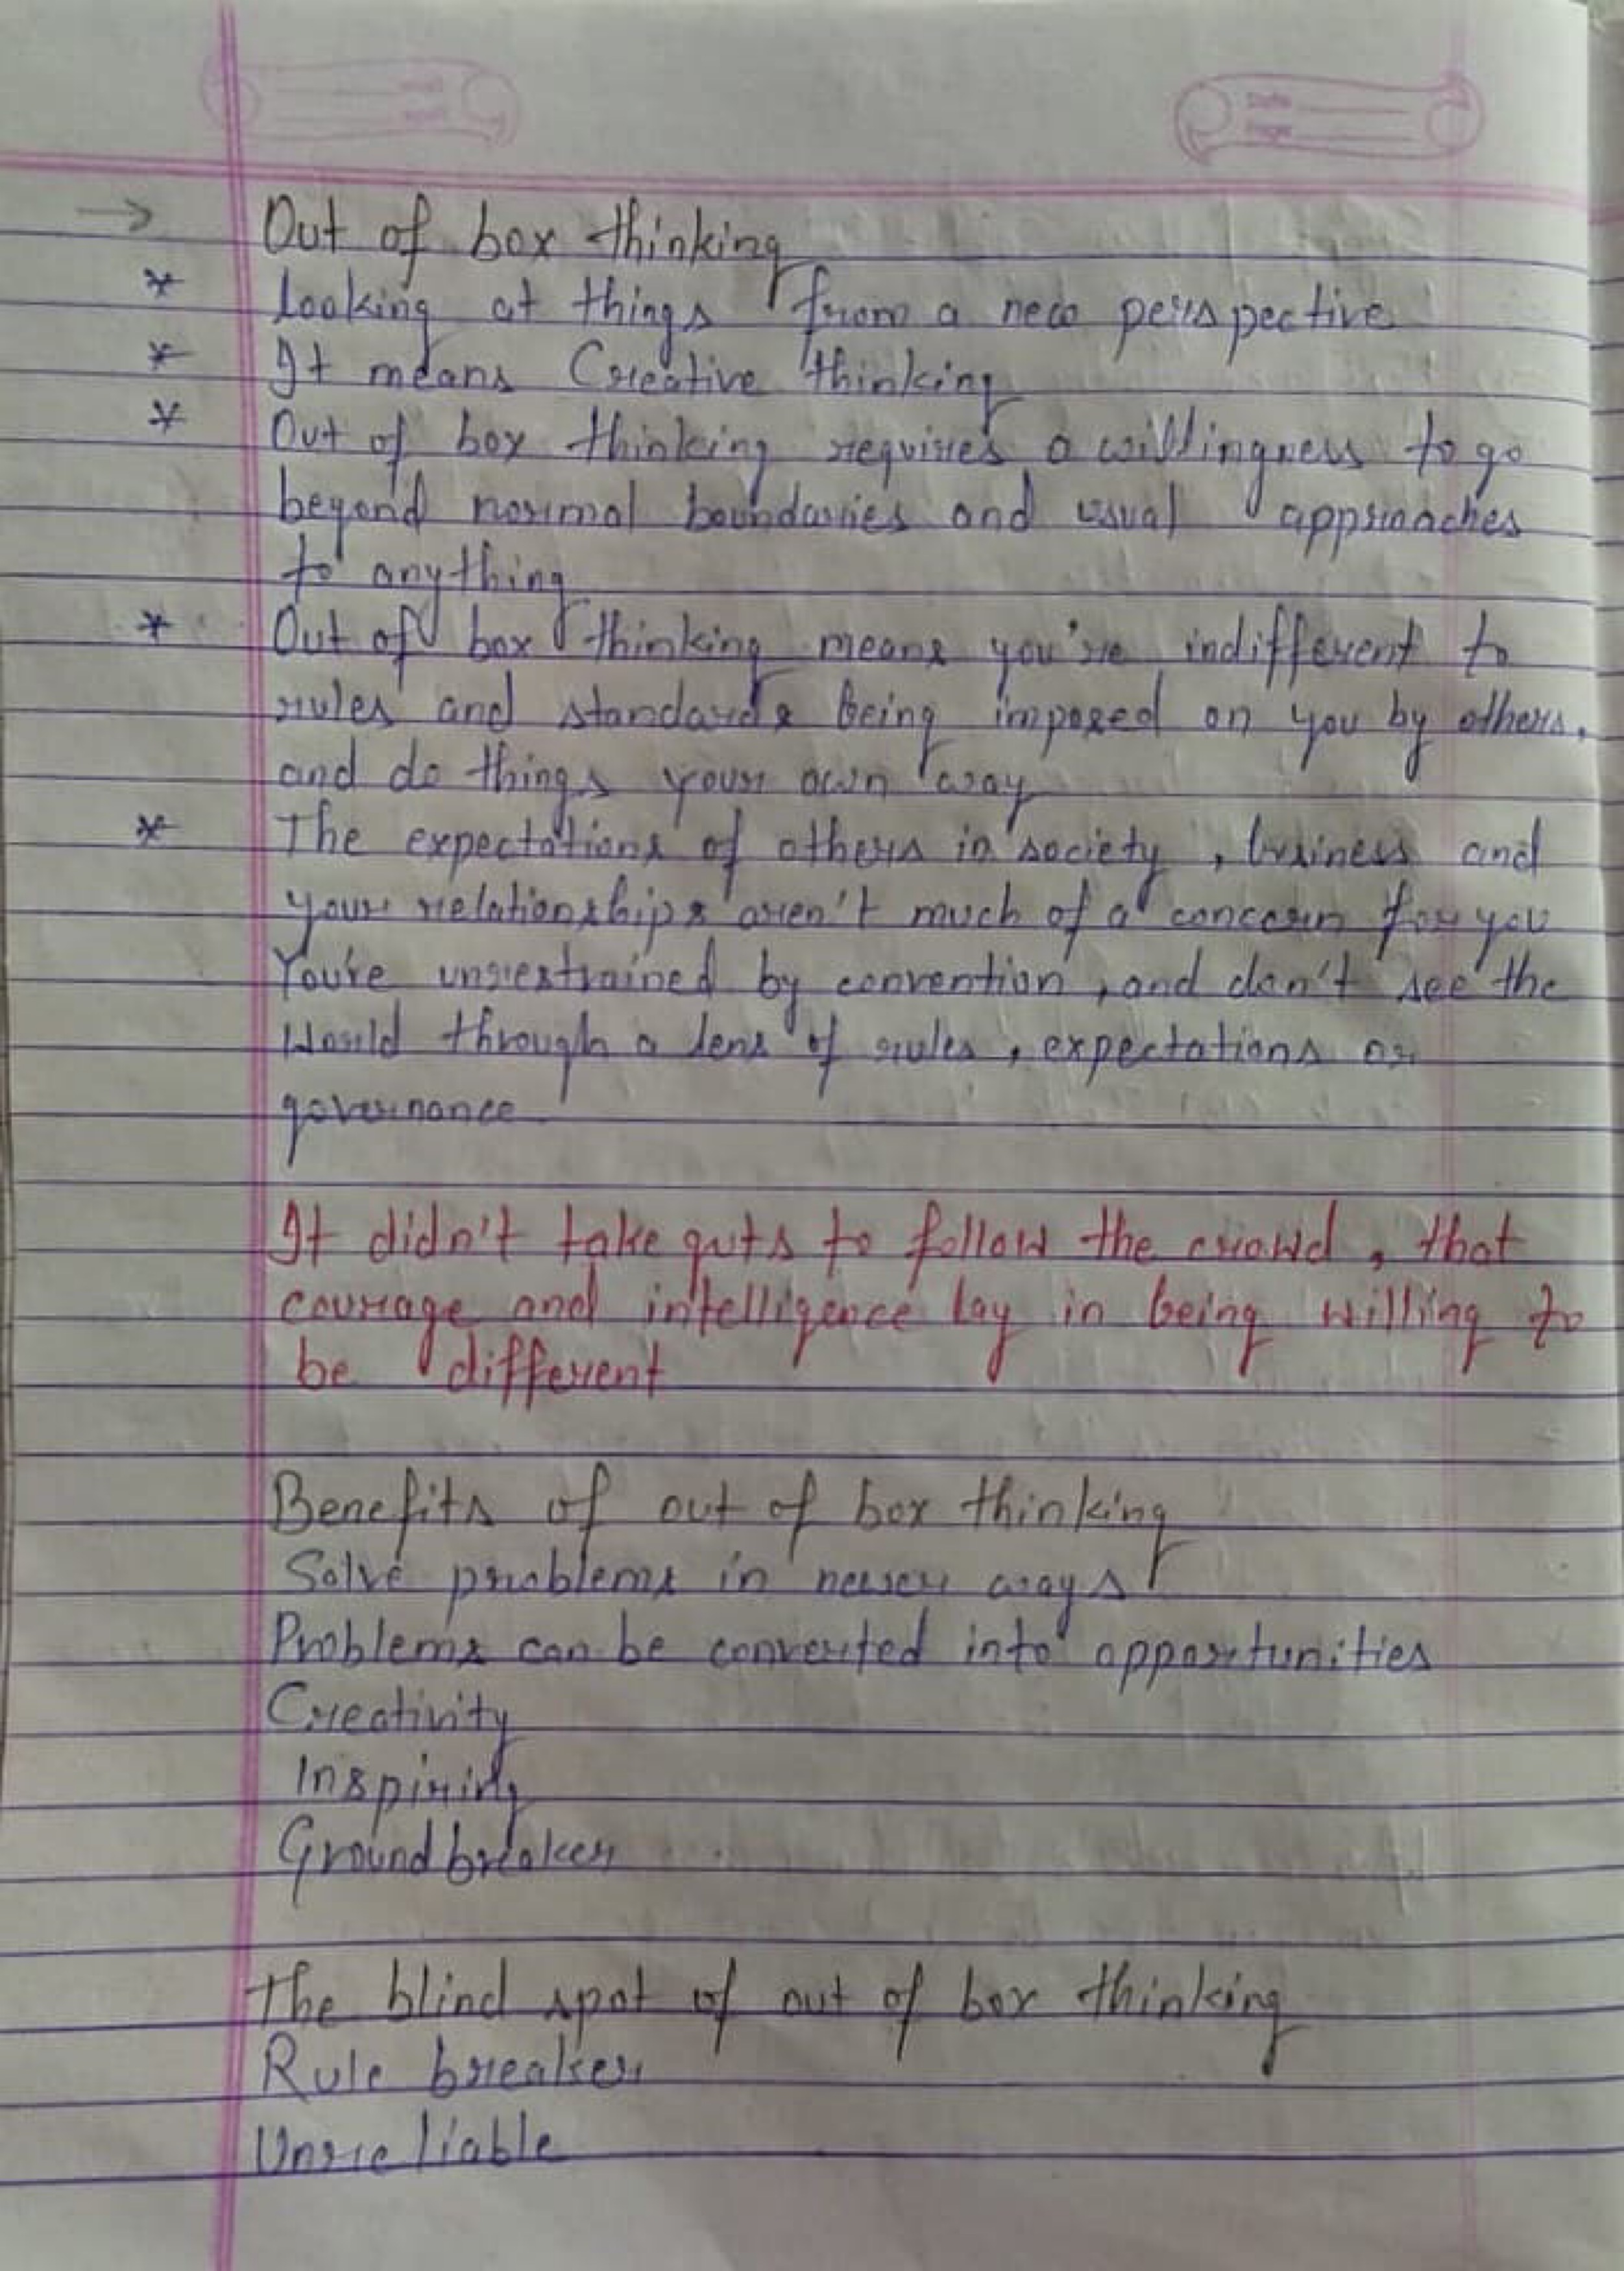 Date
Page
→ Out of box thinking
* Looking at things from a new perspective
* It means Creative thinking
* Out of box thinking requires a willingness to go
beyond normal boundaries and usual approaches
to anything
* Out of box thinking means you're indifferent to
rules and standards being imposed on you by others,
and do things your own way
* The expectations of others in society, business and
your relationships aren't much of a concern for you
You're unrestrained by convention, and don't see the
World through a lens of rules, expectations or
governance
It didn't take guts to follow the crowd, that
courage and intelligence lay in being willing to
be different
Benefits of out of box thinking
Solve problems in newer ways
Problems can be converted into opportunities
Creativity
Inspiring
Ground breaker
The blind spot of out of box thinking
Rule breaker
Unreliable